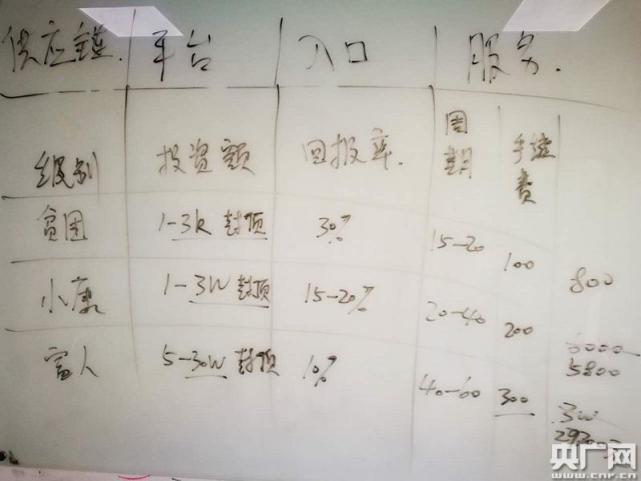 供应链. 平台 入口 服务.
级别 投资额 回报率. 周期 手续费
贫困 1-3k 封顶 30% 15-20 100 800
小康 1-3W 封顶 15-20% 20-40 200 6000
5800
富人 5-30W 封顶 10% 40-60 300 3W
央广网
www.cnr.cn